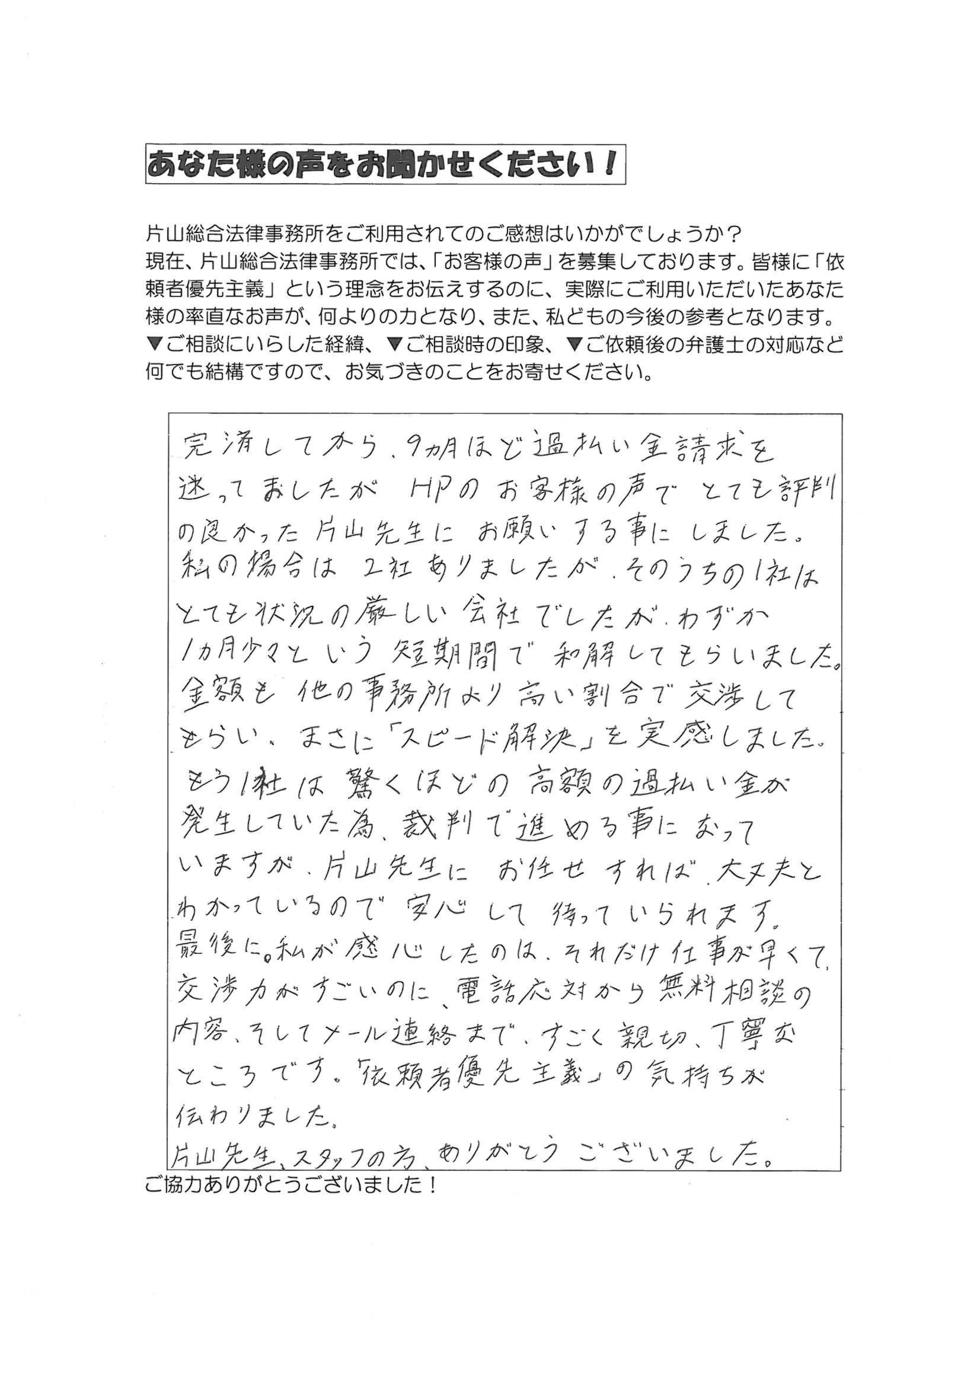 あなた様の声をお聞かせください！
片山総合法律事務所をご利用されてのご感想はいかがでしょうか？
現在、片山総合法律事務所では、「お客様の声」を募集しております。皆様に「依
頼者優先主義」という理念をお伝えするのに、実際にご利用いただいたあなた
様の率直なお声が、何よりの力となり、また、私どもの今後の参考となります。
▼ご相談にいらした経緯、▼ご相談時の印象、▼ご依頼後の弁護士の対応など
何でも結構ですので、お気づきのことをお寄せください。
完済してから、9ヵ月ほど過払い金請求を
迷ってましたが HPのお客様の声で とても評判
の良かった片山先生に お願いする事にしました。
私の場合は 2社ありましたが、そのうちの1社は
とても状況の厳しい会社でしたが、わずか
1ヵ月少々という 短期間で 和解してもらいました。
金額も 他の事務所より 高い割合で 交渉して
もらい、まさに「スピード解決」を実感しました。
もう1社は 驚くほどの 高額の過払い金が
発生していた為、裁判で進める事になって
いますが、片山先生に お任せすれば、大丈夫と
わかっているので 安心して 待っていられます。
最後に。私が感心したのは、それだけ仕事が早くて、
交渉力がすごいのに、電話応対から無料相談の
内容、そしてメール連絡まで、すごく親切、丁寧な
ところです。「依頼者優先主義」の気持ちが
伝わりました。
片山先生、スタッフの方、ありがとうございました。
ご協力ありがとうございました！